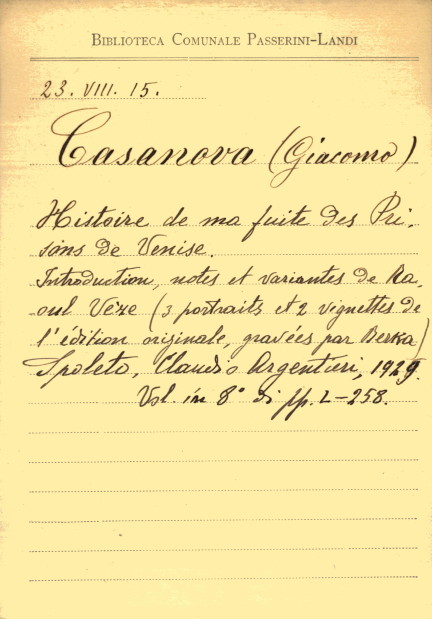 BIBLIOTECA COMUNALE PASSERINI-LANDI
23. VIII. 15.
Casanova (Giacomo)
Histoire de ma fuite des Pri-
sons de Venise.
Introduction, notes et variantes de Ra-
oul Vèze (3 portraits et 2 vignettes de
l'édition originale, gravées par Berka)
Spoleto, Claudio Argentieri, 1929.
Vol. in 8° di pp. L-258.